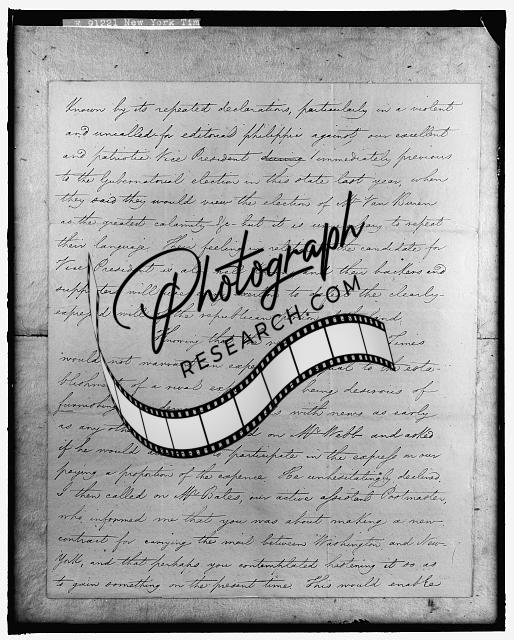 R 91221 New York Tim
Known by its repeated declarations, particularly in a violent
and uncalled-for editorial philippic against our excellent
and patriotic Vice President immediately previous
to the Gubernatorial election in this state last year, when
they said they would view the election of Mr Van Buren
as the greatest calamity &c. but it is to repeat
their language. the candidate for
Vice President is and their backers and
will the clearly-
expressed will the republican
Photograph
RESEARCH.COM
Times
would not to the esta-
blishment of a rival being desirous of
furnishing with news as early
as any on Mr Webb and asked
if he would participate in the express on our
paying a proportion of the expense. He unhesitatingly declined.
I then called on Mr Bates, our active assistant Postmaster,
who informed me that you was about making a new
contract for carrying the mail between Washington and New-
York, and that perhaps you contemplated hastening it so as
to gain something on the present time. This would enable